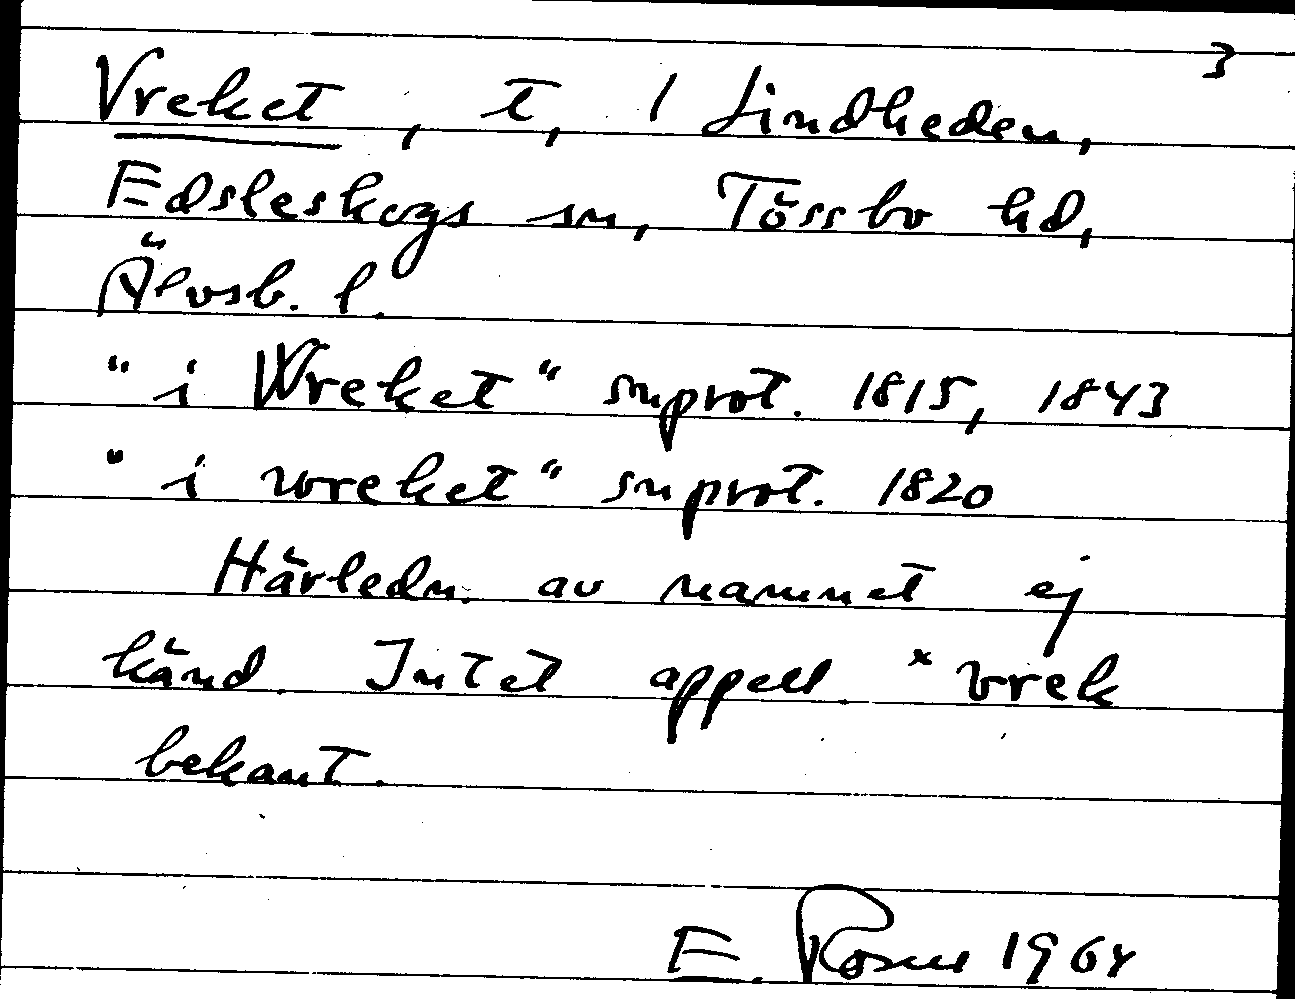 3
Vreket, t, 1 Lindheden,
Edsleskogs sn, Tössbo hd,
Älvsb. l.
"i Wreket" snprot. 1815, 1843
"i wreket" snprot. 1820
Härledn. av namnet ej
känd. Intet appell. *vrek
bekant.
E. Rosne 1964